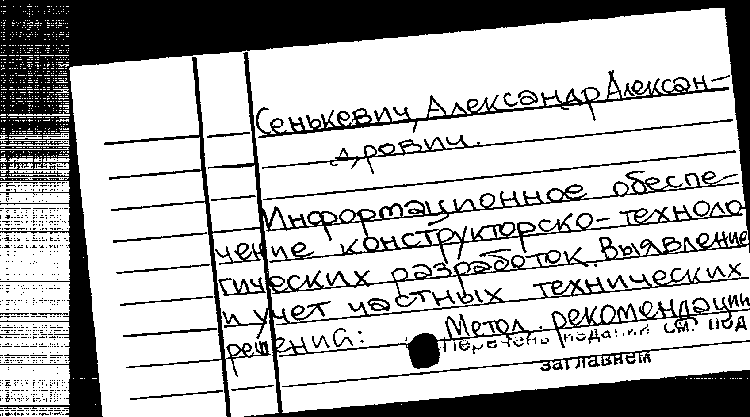 Сенькевич, Александр Алексан-
дрович.
Информационное обеспе-
чение конструкторско-техноло-
гических разработок. Выявление
и учет частных технических
решений: Метод. рекомендации
Перечень изданий см. под
заглавием